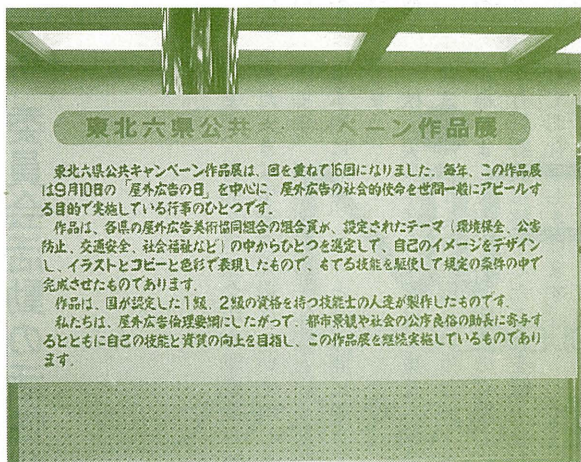 東北六県公共キャンペーン作品展
東北六県公共キャンペーン作品展は、回を重ねて16回になりました。毎年、この作品展
は9月10日の「屋外広告の日」を中心に、屋外広告の社会的使命を世間一般にアピールす
る目的で実施している行事のひとつです。
作品は、各県の屋外広告美術協同組合の組合員が、設定されたテーマ（環境保全、公害
防止、交通安全、社会福祉など）の中からひとつを選定して、自己のイメージをデザイン
し、イラストとコピーと色彩で表現したもので、もてる技能を駆使して規定の条件の中で
完成させたものであります。
作品は、国が認定した1級、2級の資格を持つ技能士の人達が製作したものです。
私たちは、屋外広告倫理要綱にしたがって、都市景観や社会の公序良俗の助長に寄与す
るとともに自己の技能と資質の向上を目指し、この作品展を継続実施しているものであり
ます。